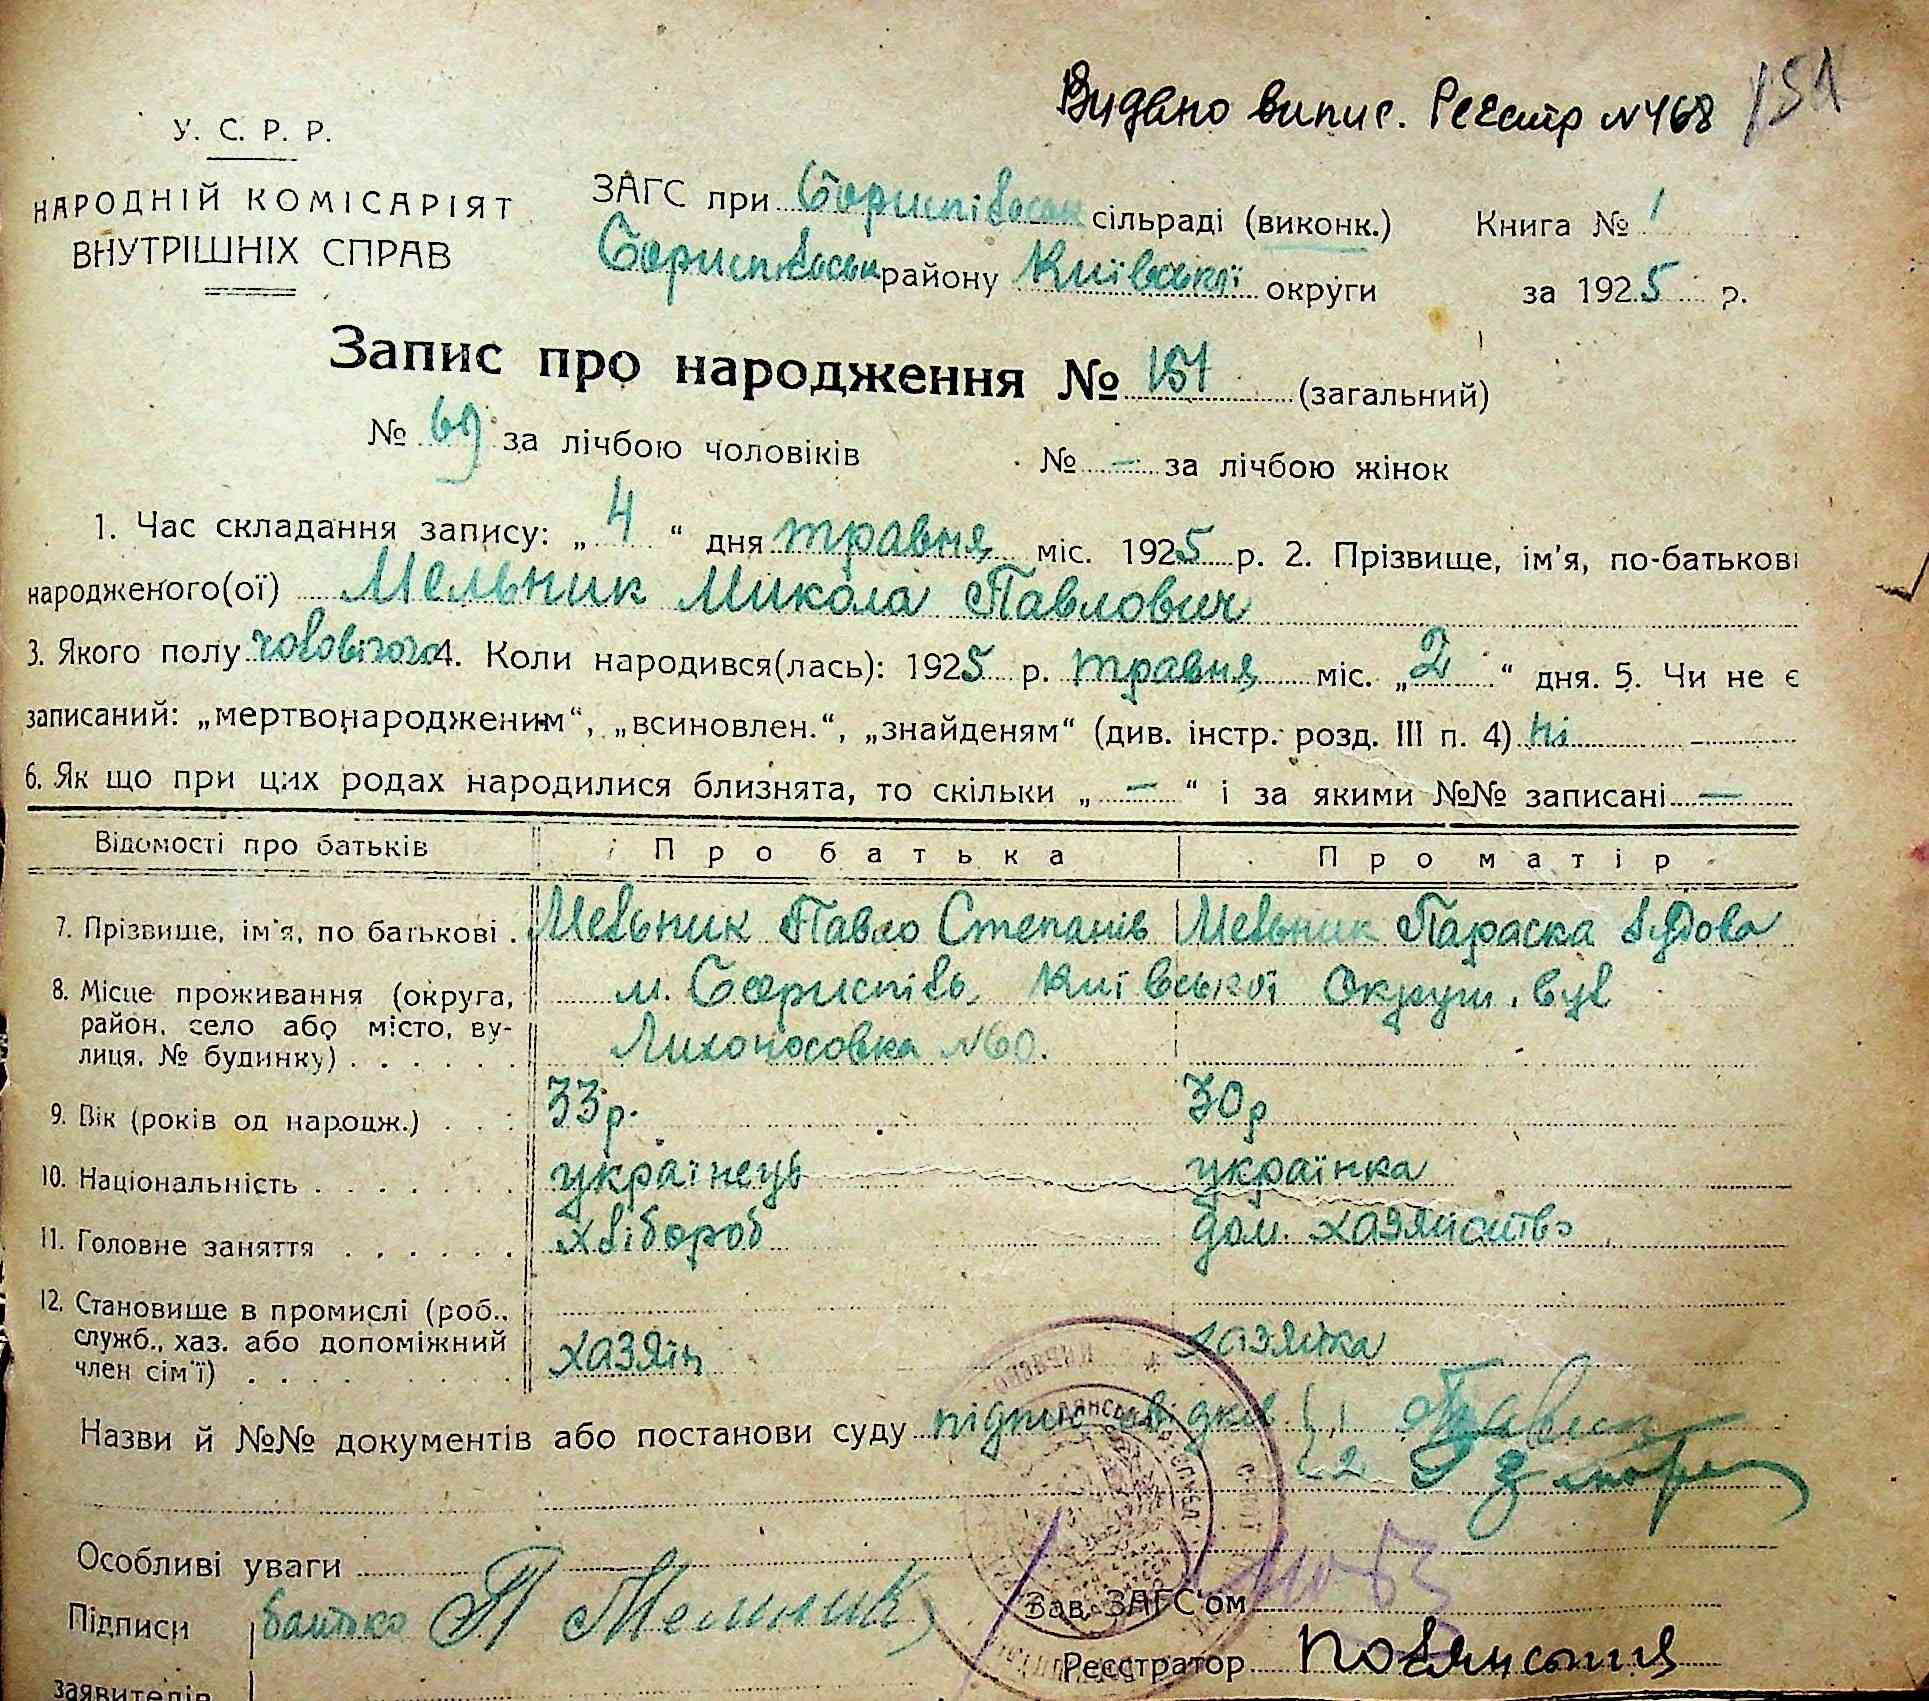 Видано випис. Реєстр №468 151
У. С. Р. Р.
НАРОДНІЙ КОМІСАРІЯТ
ВНУТРІШНІХ СПРАВ
ЗАГС при Бориспільськ сільраді (виконк.) Книга № 1
Бориспільськ району Київської округи за 1925 р.
Запис про народження № 151 (загальний)
№ 69 за лічбою чоловіків № — за лічбою жінок
1. Час складання запису: „ 4 “ дня травня міс. 1925 р. 2. Прізвище, ім'я, по-батькові
народженого(ої) Мельник Микола Павлович
3. Якого полу чоловічого 4. Коли народився(лась): 1925 р. травня міс. „ 2 “ дня. 5. Чи не є
записаний: „мертвонародженим“, „всиновлен.“, „знайденям“ (див. інстр. розд. III п. 4) ні
6. Як що при цих родах народилися близнята, то скільки „ — “ і за якими №№ записані —
Відомості про батьків Про батька Про матір
7. Прізвище, ім'я, по батькові . Мельник Павло Степанів Мельник Параска
8. Місце проживання (округа, м. Бориспіль, Київської Округи, вул
район, село або місто, ву-
лиця, № будинку) . . . . . . Лихоносовка №60.
9. Вік (років од народж.) . . . 33р. 30р
10. Національність . . . . . . . українець українка
11. Головне заняття . . . . . . хлібороб дом. хазяйство
12. Становище в промислі (роб.,
служб., хаз. або допоміжний
член сім'ї) . . . . хазяїн хазяйка
Назви й №№ документів або постанови суду підпис свідків 1
2
Особливі уваги
Підписи батько П Мельник Зав. ЗАГС'ом
Реєстратор
заявителів